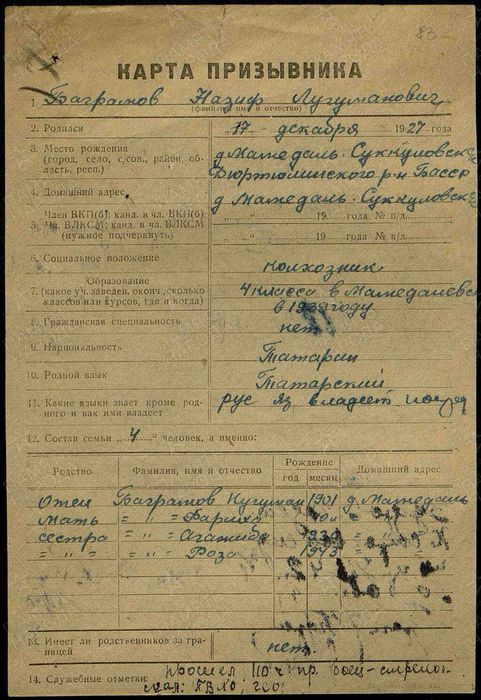 83
КАРТА ПРИЗЫВНИКА
1. Баграмов Назиф Лугуманович
(фамилия, имя и отчество)
2. Родился „17“ декабря 1927 года
3. Место рождения (город, село, с/сов., район, область, респ.) д Мамедаль. Суккуловск
Бюртюлинского р-н Басср
4. Домашний адрес д Мамедаль. Суккуловск
5. Член ВКП(б); канд. в чл. ВКП(б) „ “ 19 года № п/д.
Чл. ВЛКСМ; канд. в чл. ВЛКСМ (нужное подчеркнуть) „ “ 19 года № к/д.
6. Социальное положение колхозник
7. Образование (какое уч. заведен. оконч., сколько классов или курсов, где и когда) 4 класса в
в 1939 году
8. Гражданская специальность нет
9. Национальность Татарин
10. Родной язык Татарский
11. Какие языки знает кроме родного и как ими владеет рус яз владеет
12. Состав семьи „4“ человек, а именно:
Родство Фамилия, имя и отчество Рождение год месяц Домашний адрес
Отец Баграмов 1901 д. Мамедаль
Мать = „ =
сестра = „ =
= „ = = „ = Роза 1943
13. Имеет ли родственников за границей нет
14. Служебные отметки: прошел 110 ч. пр. боец-стрелок